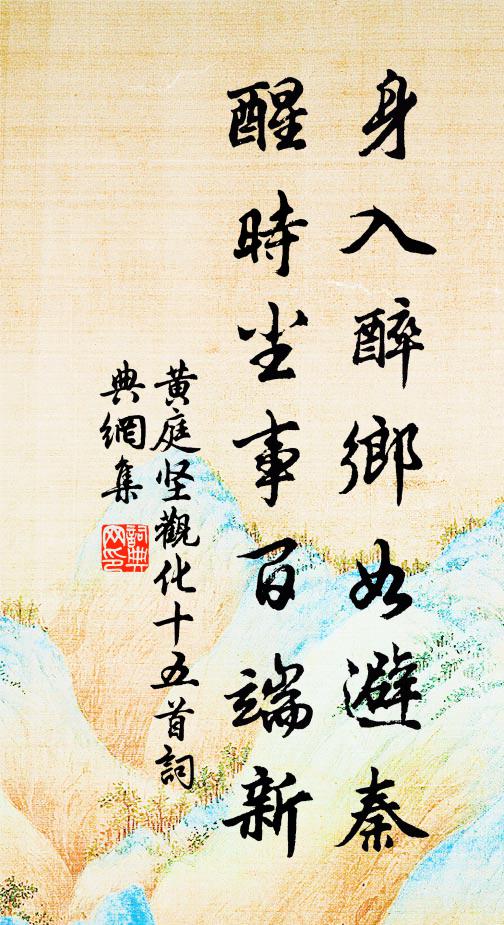 身入醉鄉如避秦
醒時尘事百端新
黄庭坚觀化十五首詞
典網集
詞典
网印